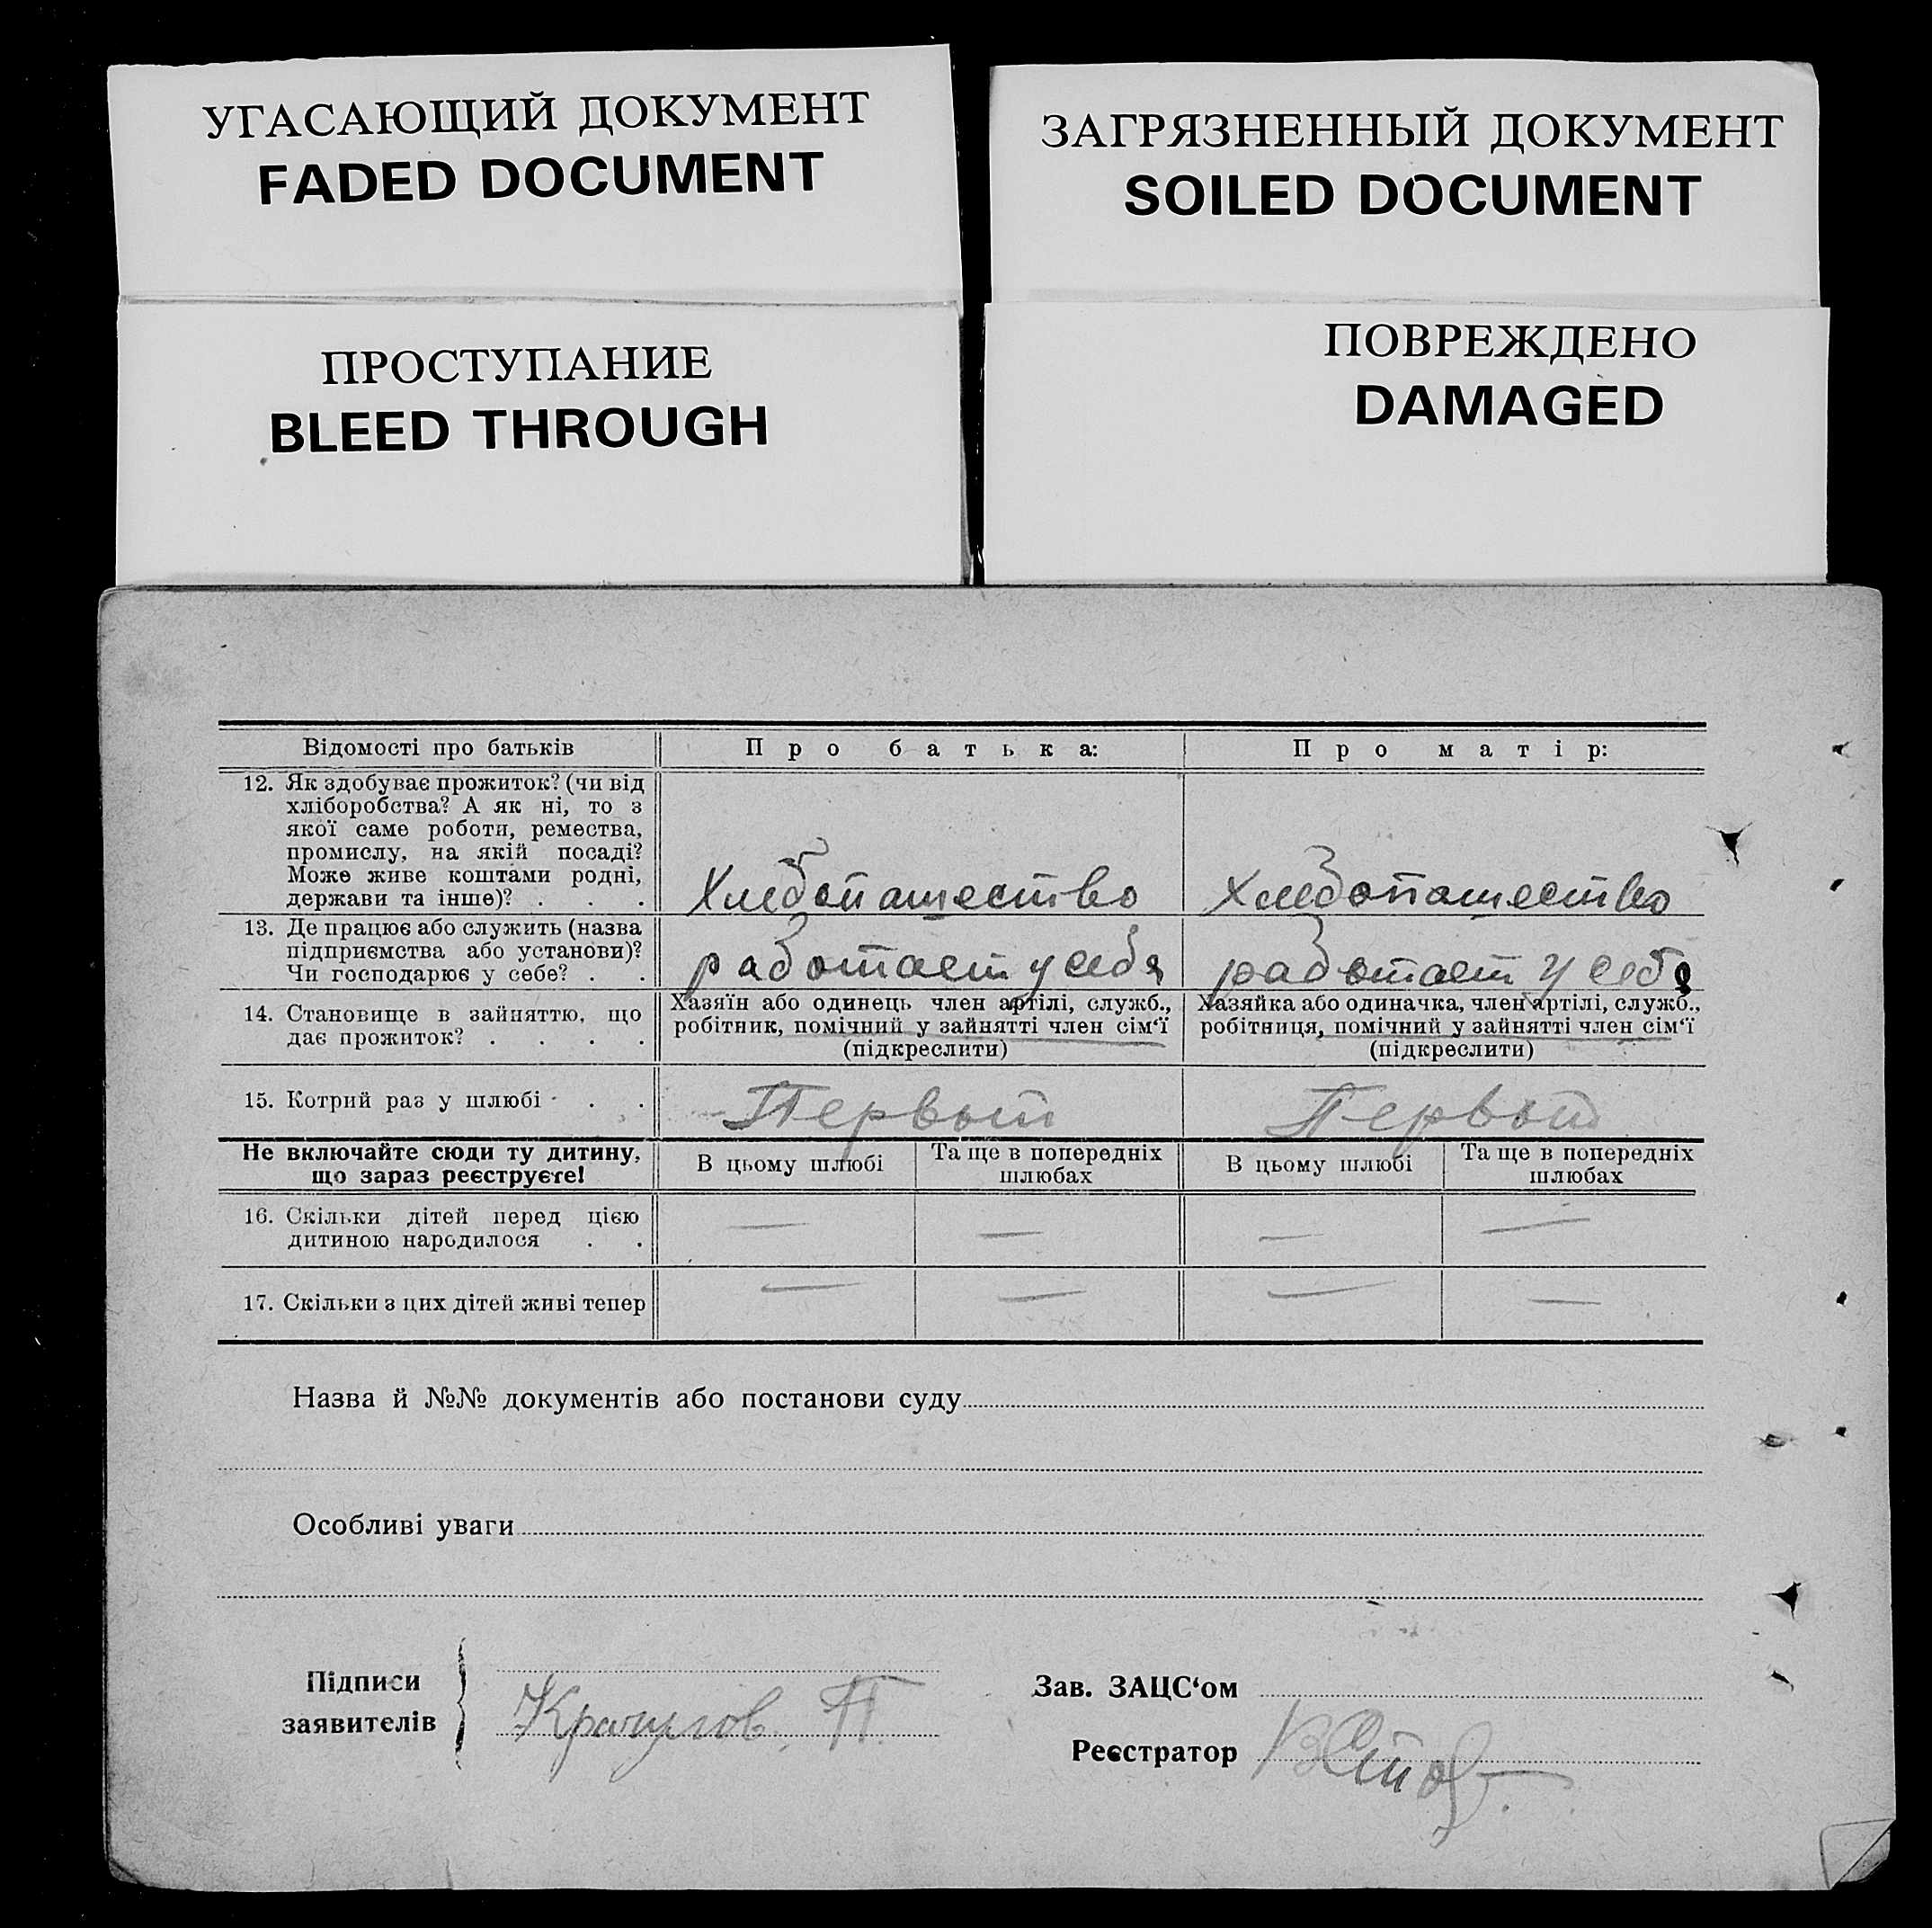 УГАСАЮЩИЙ ДОКУМЕНТ
FADED DOCUMENT
ЗАГРЯЗНЕННЫЙ ДОКУМЕНТ
SOILED DOCUMENT
ПРОСТУПАНИЕ
BLEED THROUGH
ПОВРЕЖДЕНО
DAMAGED
Відомості про батьків
Про батька:
Про матір:
12. Як здобуває прожиток? (чи від
хліборобства? А як ні, то з
якої саме роботи, ремества,
промислу, на якій посаді?
Може живе коштами родні,
держави та інше)? . . .
Хлебопашество
Хлебопашество
13. Де працює або служить (назва
підприємства або установи)?
Чи господарює у себе? . .
работает у себя
работает у себя
14. Становище в зайняттю, що
дає прожиток? . . . .
Хазяїн або одинець член артілі, служб.,
робітник, помічний у зайнятті член сім‘ї
(підкреслити)
Хазяйка або одиначка, член артілі, служб.,
робітниця, помічний у зайнятті член сім‘ї
(підкреслити)
15. Котрий раз у шлюбі . . .
Первый
Первый
Не включайте сюди ту дитину,
що зараз реєструєте!
В цьому шлюбі
Та ще в попередніх
шлюбах
В цьому шлюбі
Та ще в попередніх
шлюбах
16. Скільки дітей перед цією
дитиною народилося . .
— — — —
17. Скільки з цих дітей живі тепер
— — — —
Назва й №№ документів або постанови суду
Особливі уваги
Підписи
заявителів
П.
Зав. ЗАЦС‘ом
Реєстратор